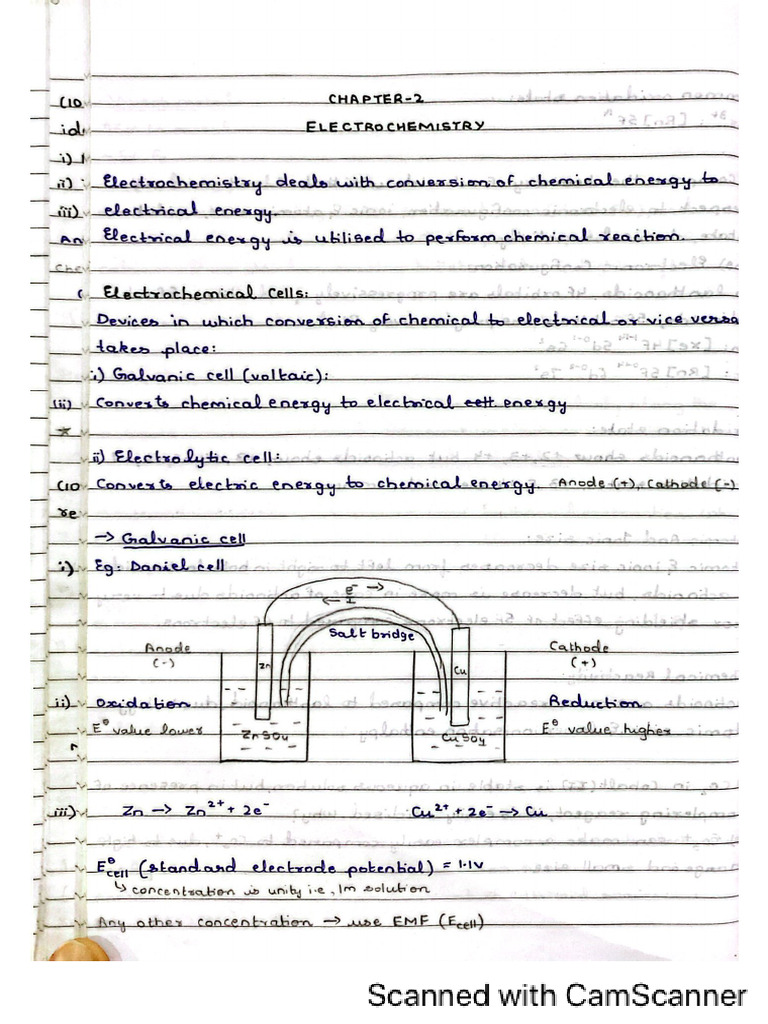 CHAPTER-2
ELECTROCHEMISTRY
Electrochemistry deals with conversion of chemical energy to
electrical energy.
Electrical energy is utilised to perform chemical reaction.
Electrochemical Cells:
Devices in which conversion of chemical to electrical or vice versa
takes place:
i) Galvanic cell (voltaic):
Converts chemical energy to electrical cell energy
ii) Electrolytic cell:
Converts electric energy to chemical energy. Anode (+), Cathode (-)
→ Galvanic cell
Eg: Daniel cell
e⁻ →
← I
Salt bridge
Anode
(-)
Cathode
(+)
Zn
Cu
Oxidation
Reduction
E⁰ value lower
ZnSO4
CuSO4
E⁰ value higher
Zn → Zn²⁺ + 2e⁻
Cu²⁺ + 2e⁻ → Cu
E⁰cell (standard electrode potential) = 1.1V
↳ concentration is unity i.e, 1m solution
Any other concentration → use EMF (Ecell)
Scanned with CamScanner